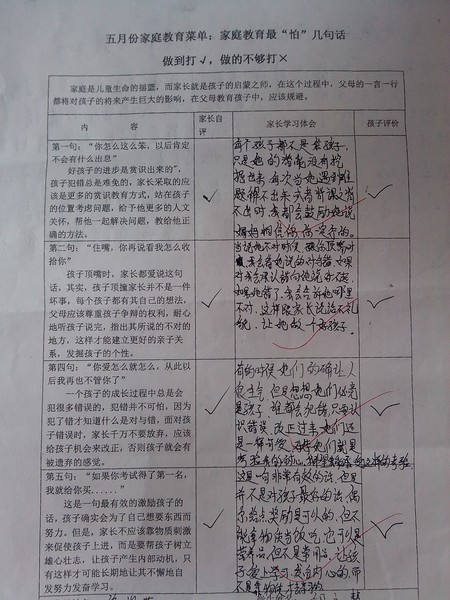 五月份家庭教育菜单：家庭教育最“怕”几句话
做到打√，做的不够打×
家庭是儿童生命的摇篮，而家长就是孩子的启蒙之师，在这个过程中，父母的一言一行
都将对孩子的将来产生巨大的影响，在父母教育孩子中，应该规避。
内 容
家长自评
家长学习体会
孩子评价
第一句：“你怎么这么笨，以后肯定
不会有什么出息”
好孩子的进步是赏识出来的”，
孩子犯错总是难免的，家长采取的应
该是更多的赏识教育方式，站在孩子
的位置考虑问题，给予他更多的人文
关怀，帮他一起解决问题，教给他正
确的方法。
√
每个孩子都不是笨孩子，
只是她的潜能没有挖
掘出来，每次当她遇到难
题得不出来或者背课文背
不出时，我都会鼓励她说
妈妈相信你
√
第二句：“住嘴，你再说看我怎么收
拾你”
孩子顶嘴时，家长都爱说这句
话，其实，孩子顶撞家长并不是一件
坏事，每个孩子都有其自己的想法，
父母应该尊重孩子争辩的权利，耐心
地听孩子说完，指出其所说的不对的
地方，这样才能建立更好的亲子关
系，发掘孩子的个性。
√
当说她不对时候
我会承认错向他说
她错了，我会告诉她哪里
不对，这样跟家长说话不礼
貌，让她做一个好孩子。
√
第四句：“你爱怎么就怎么，从此以
后我再也不管你了”
一个孩子的成长过程中总是会
犯很多错误的，犯错并不可怕，因为
犯了错才知道什么是对与错，面对孩
子错误时，家长千万不要放弃，应该
给孩子机会来改正，否则孩子就会有
被遗弃的感觉。
√
有的时候她们的确让人
很生气，但是想想她们必竟
是孩子，谁都会犯错，只要认
识错误，改正过来她们还
是一样可爱
√
第五句：“如果你考试得了第一名，
我就给你买……”
这是一句最有效的激励孩子的
话，孩子确实会为了自己想要东西而
努力。但是，家长不应该靠物质刺激
来促使孩子上进，而是要帮孩子树立
雄心壮志，让孩子产生内部动机，只
有这样才可能长期地让其不懈地自
发努力发奋学习。
√
这是一句非常有效的话，但是
并不是对孩子最好的话，偶
尔给点奖励是可以的，但不
能拿物质当饭吃，也可以是
营养品，但不是常用品，让孩
子爱上学习
√